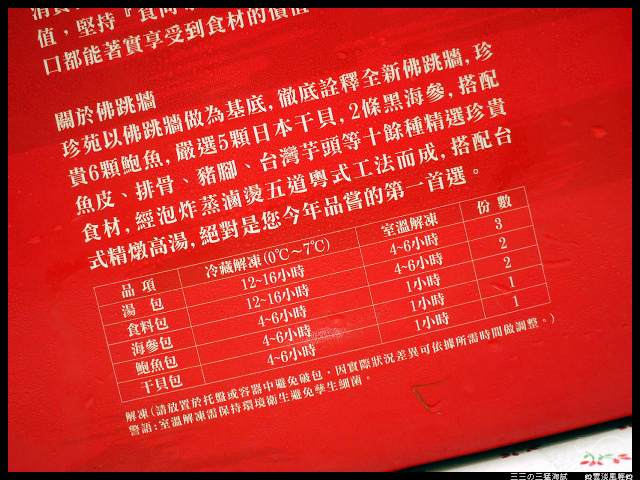 值，堅持『食尚
口都能著實享受到食材的價值
關於佛跳牆
珍苑以佛跳牆做為基底，徹底詮釋全新佛跳牆，珍
貴6顆鮑魚，嚴選5顆日本干貝，2條黑海參，搭配
魚皮、排骨、豬腳、台灣芋頭等十餘種精選珍貴
食材，經泡炸蒸滷燙五道粵式工法而成，搭配台
式精燉高湯，絕對是您今年品嘗的第一首選。
品項 冷藏解凍(0℃～7℃) 室溫解凍 份數
湯包 12~16小時 4~6小時 3
食料包 12~16小時 4~6小時 2
海參包 4~6小時 1小時 2
鮑魚包 4~6小時 1小時 1
干貝包 4~6小時 1小時 1
解凍(請放置於托盤或容器中避免破包，因實際狀況差異可依據所需時間做調整。)
警語：室溫解凍需保持環境衛生避免孳生細菌。
三三の三猛海賦 @雲淡風輕@